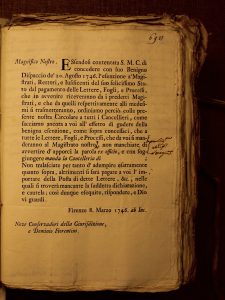 630
Magnifico Nostro.
ESsendosi contentata S. M. C. di
concedere con suo Benigno
Dispaccio de' 20. Agosto 1746. l'esenzione a' Magi-
strati, e Iusdicenti del suo felicissimo Sta-
to dal pagamento delle Lettere, Fogli, e Processi,
che in avvenire riceveranno da i predetti Magi-
strati, e che da quelli respettivamente alli mede-
simi si trasmetteranno, ordiniamo perciò colla pre-
sente nostra Circolare a tutti i Cancellieri, come
facciamo ancora a voi all' effetto di godere della
benigna esenzione, come sopra concedutaci, che a
tutte le Lettere, Fogli, e Processi, che da voi si man-
deranno al Magistrato nostro, non manchiate di
avvertire d' apporci la parola ex officio, e con sog-
giungere manda la Cancelleria di
Non tralasciate per tanto d' adempire esattamente
quanto sopra, altrimenti si farà pagare a voi l' im-
portare della Posta di dette Lettere, &c., nelle
quali si troverà mancante la suddetta dichiarazione,
e cautela; così dunque eseguite, rispondete, e Dio
vi guardi.
Firenze 8. Marzo 1746. ab Inc.
Nove Conservadori della Giurisdizione,
e Dominio Fiorentino.